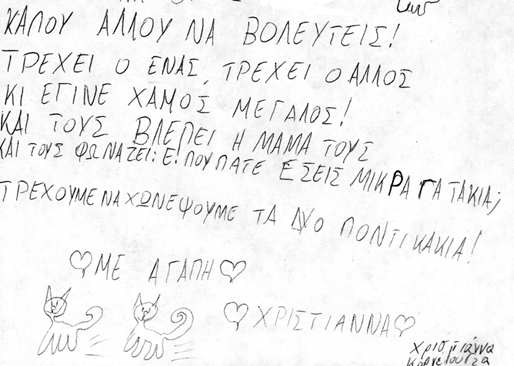 ΚΑΠΟΥ ΑΛΛΟΥ ΝΑ ΒΟΛΕΥΤΕΙΣ!
ΤΡΕΧΕΙ Ο ΕΝΑΣ, ΤΡΕΧΕΙ Ο ΑΛΛΟΣ
ΚΙ ΕΓΙΝΕ ΧΑΜΟΣ ΜΕΓΑΛΟΣ!
ΚΑΙ ΤΟΥΣ ΒΛΕΠΕΙ Η ΜΑΜΑ ΤΟΥΣ
ΚΑΙ ΤΟΥΣ ΦΩΝΑΖΕΙ: Ε! ΠΟΥ ΠΑΤΕ ΕΣΕΙΣ ΜΙΚΡΑ ΓΑΤΑΚΙΑ;
ΤΡΕΧΟΥΜΕ ΝΑ ΧΩΝΕΨΟΥΜΕ ΤΑ ΔΥΟ ΠΟΝΤΙΚΑΚΙΑ!
♡ΜΕ ΑΓΑΠΗ♡
♡ΧΡΙΣΤΙΑΝΝΑ♡